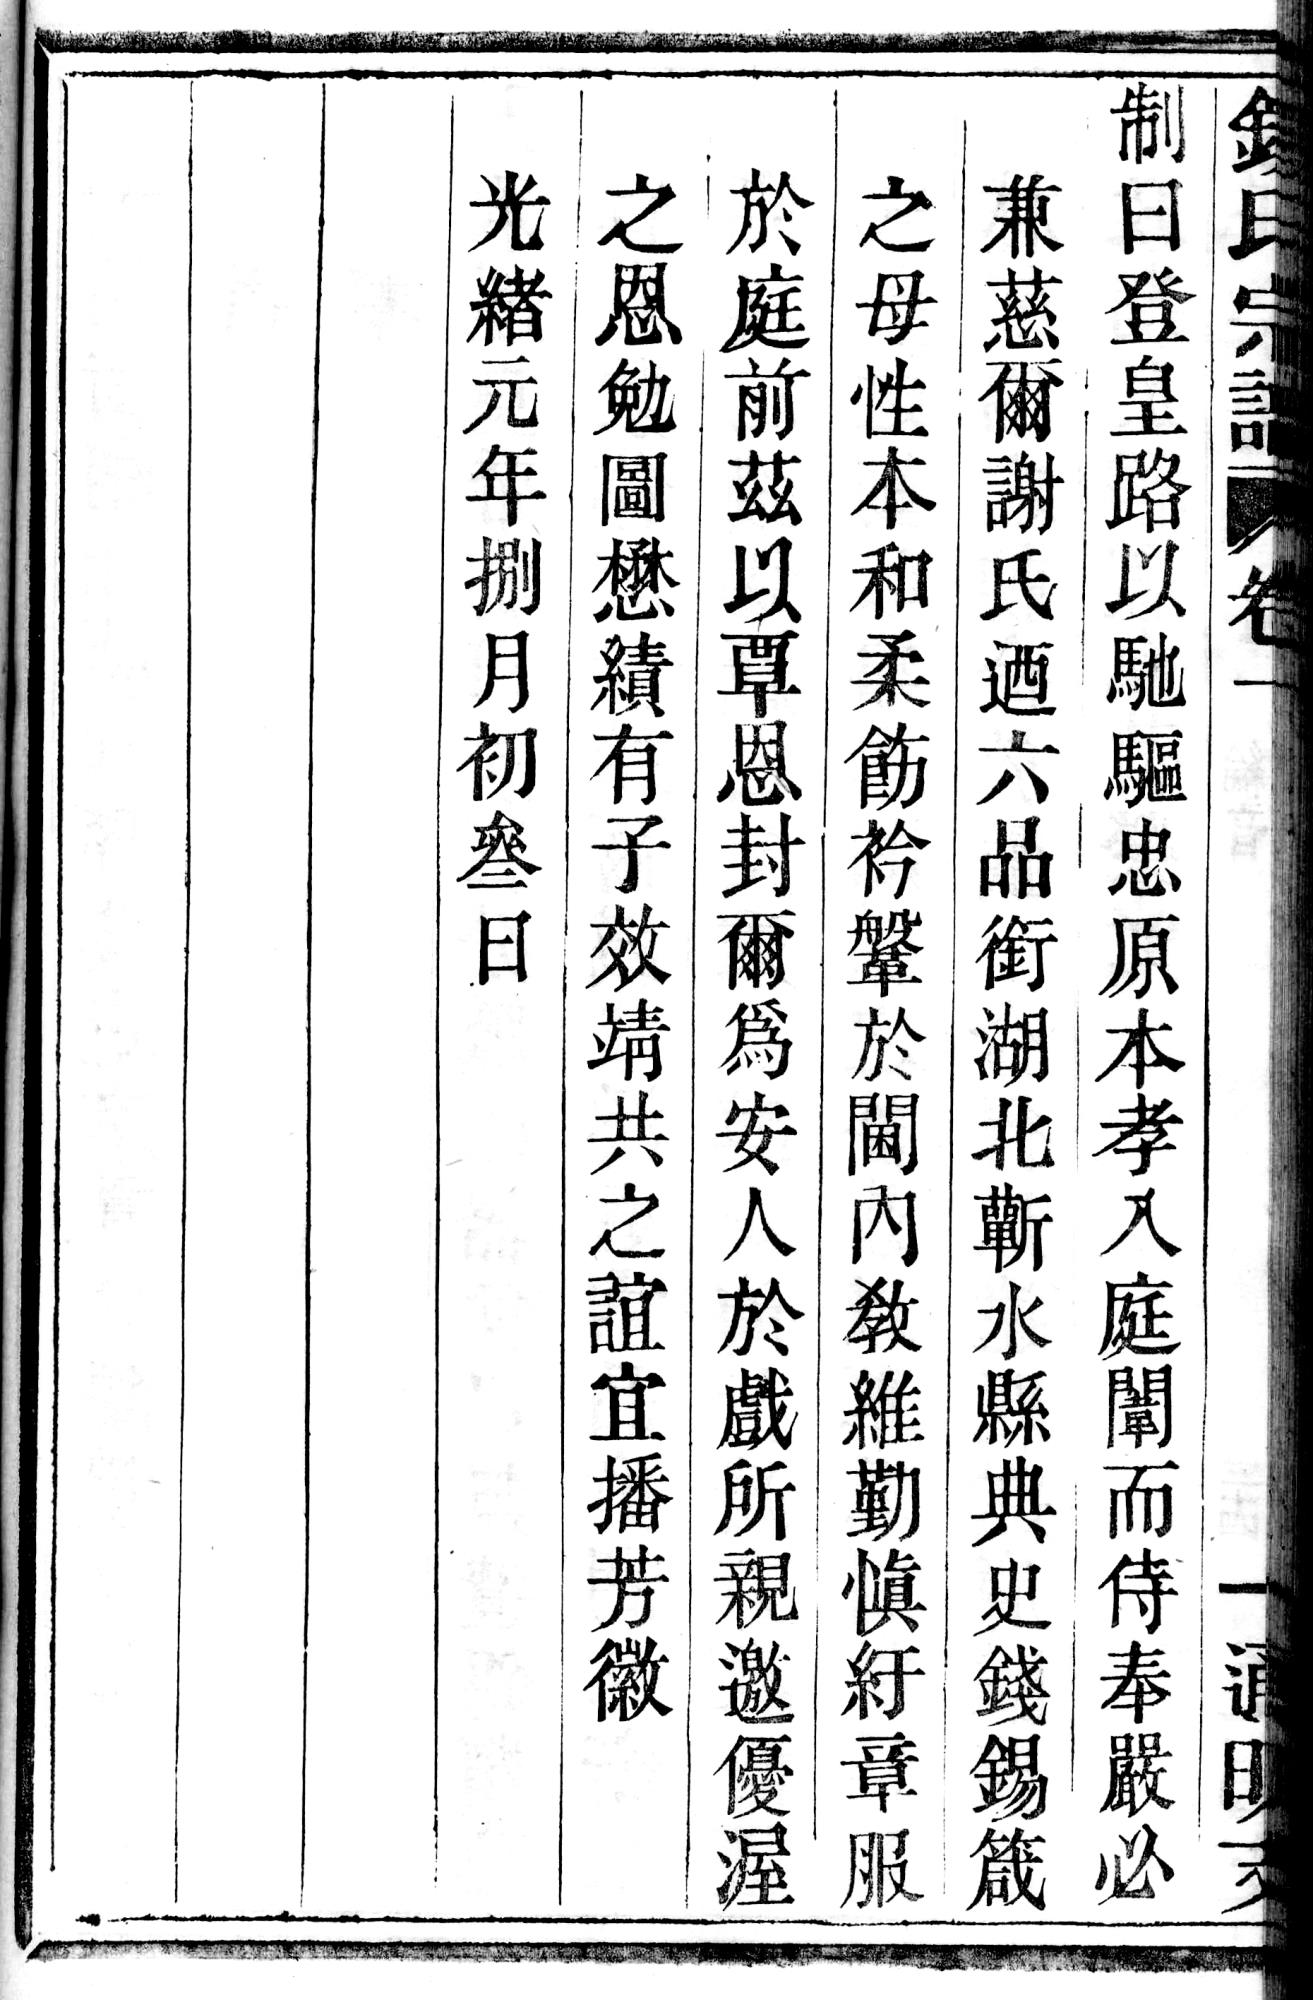 錢氏宗譜 卷一 一 通明文
制曰登皇路以馳驅忠原本孝入庭闈而侍奉嚴必
兼慈爾謝氏迺六品銜湖北蘄水縣典史錢錫箴
之母性本和柔飭衿鞶於閫內教維勤慎紆章服
於庭前茲以覃恩封爾為安人於戲所親邀優渥
之恩勉圖懋績有子效靖共之誼宜播芳徽
光緒元年捌月初叁日